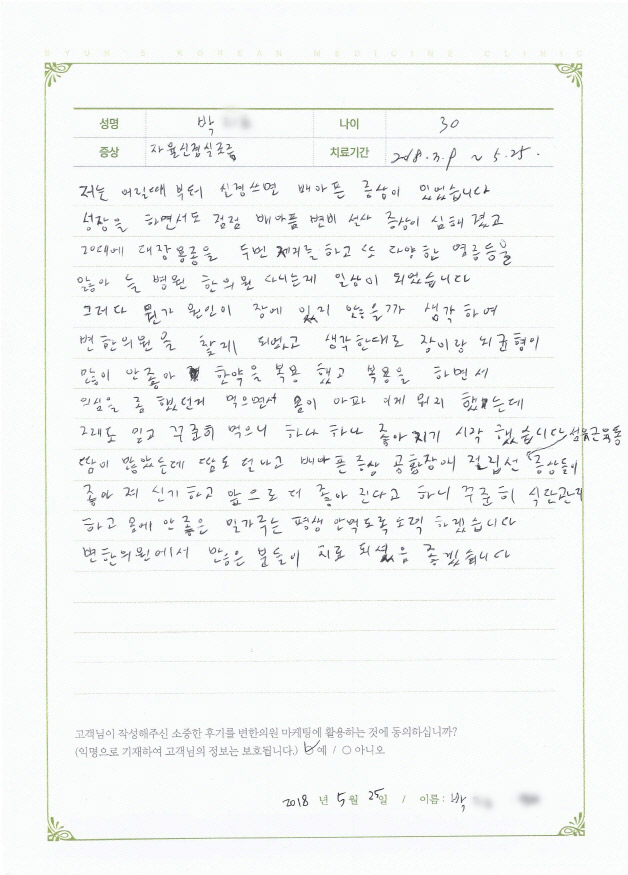 BYUN'S KOREAN MEDICINE CLINIC
성명 박 나이 30
증상 자율신경실조증 치료기간 2018.3.9 ~ 5.25.
저는 어릴때 부터 신경쓰면 배아픈 증상이 있었습니다
성장을 하면서도 점점 배아픔 변비 설사 증상이 심해 졌고
20대에 대장용종을 두번 제거를 하고 또 다양한 염증들을
앓아 늘 병원 한의원 다니는게 일상이 되었습니다
그러다 뭔가 원인이 장에 있지 않을까 생각하여
변한의원을 찾게 되었고 생각한대로 장이랑 뇌균형이
많이 안좋아 한약을 복용 했고 복용을 하면서
의심을 좀 했던게 먹으면서 몸이 아파 이게 뭐지 했는데
그래도 믿고 꾸준히 먹으니 하나 하나 좋아지기 시작 했습니다 섬유근육통
땀이 많았는데 땀도 덜나고 배아픈증상 공황장애 전립선 증상들이
좋아 져 신기하고 앞으로 더 좋아 진다고 하니 꾸준히 식단관리
하고 몸에 안좋은 밀가루는 평생 안먹도록 노력 하겠습니다
변한의원에서 많은 분들이 치료 되셨음 좋겠습니다
고객님이 작성해주신 소중한 후기를 변한의원 마케팅에 활용하는 것에 동의하십니까?
(익명으로 기재하여 고객님의 정보는 보호됩니다.) 예 / 아니오
2018 년 5월 25일 / 이름 : 박